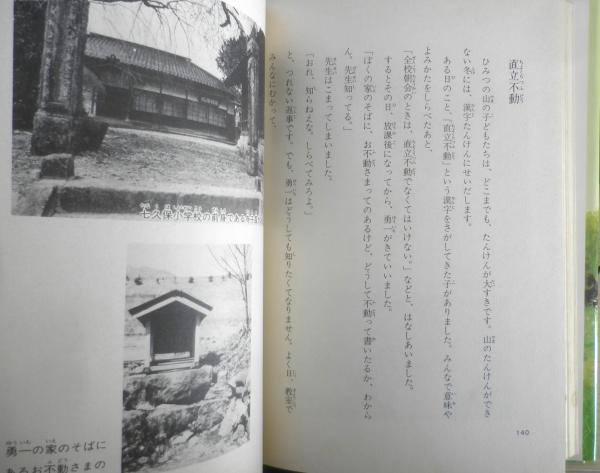 直立不動
ひみつの山の子どもたちは、どこまでも、たんけんが大すきです。山のたんけんができ
ない冬には、漢字たんけんにせいだします。
ある日のこと、「直立不動」という漢字をさがしてきた子がありました。みんなで意味や
よみかたをしらべたあと、
「全校朝会のときは、直立不動でなくてはいけない。」などと、はなしあいました。
するとその日、放課後になってから、勇一がきていいました。
「ぼくの家のそばに、お不動さまってのあるけど、どうして不動って書いたるか、わから
ん。先生知ってる。」
先生はこまってしまいました。
「おれ、知らねえな。しらべてみろよ。」
と、つれない返事です。でも、勇一はどうしても知りたくてなりません。よく日、教室で
みんなにむかって、
140
七久保小学校の前身である
勇一の家のそばに
あるお不動さまの